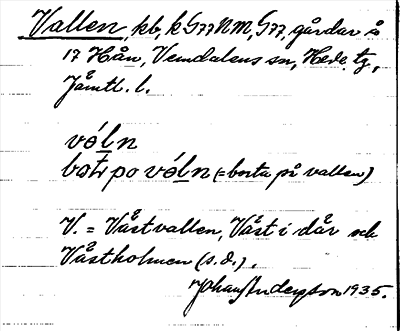 Vallen, kb, k G77 NM, G77, gårdar å
17 Hån, Vemdalens sn, Hede tg,
Jämtl. l.
vǿln
bot po vǿln (= borta på vallen)
V. = Våstvallen, Våst i dår och
Våstholmen (s.d.).
Johans Anderson 1935.